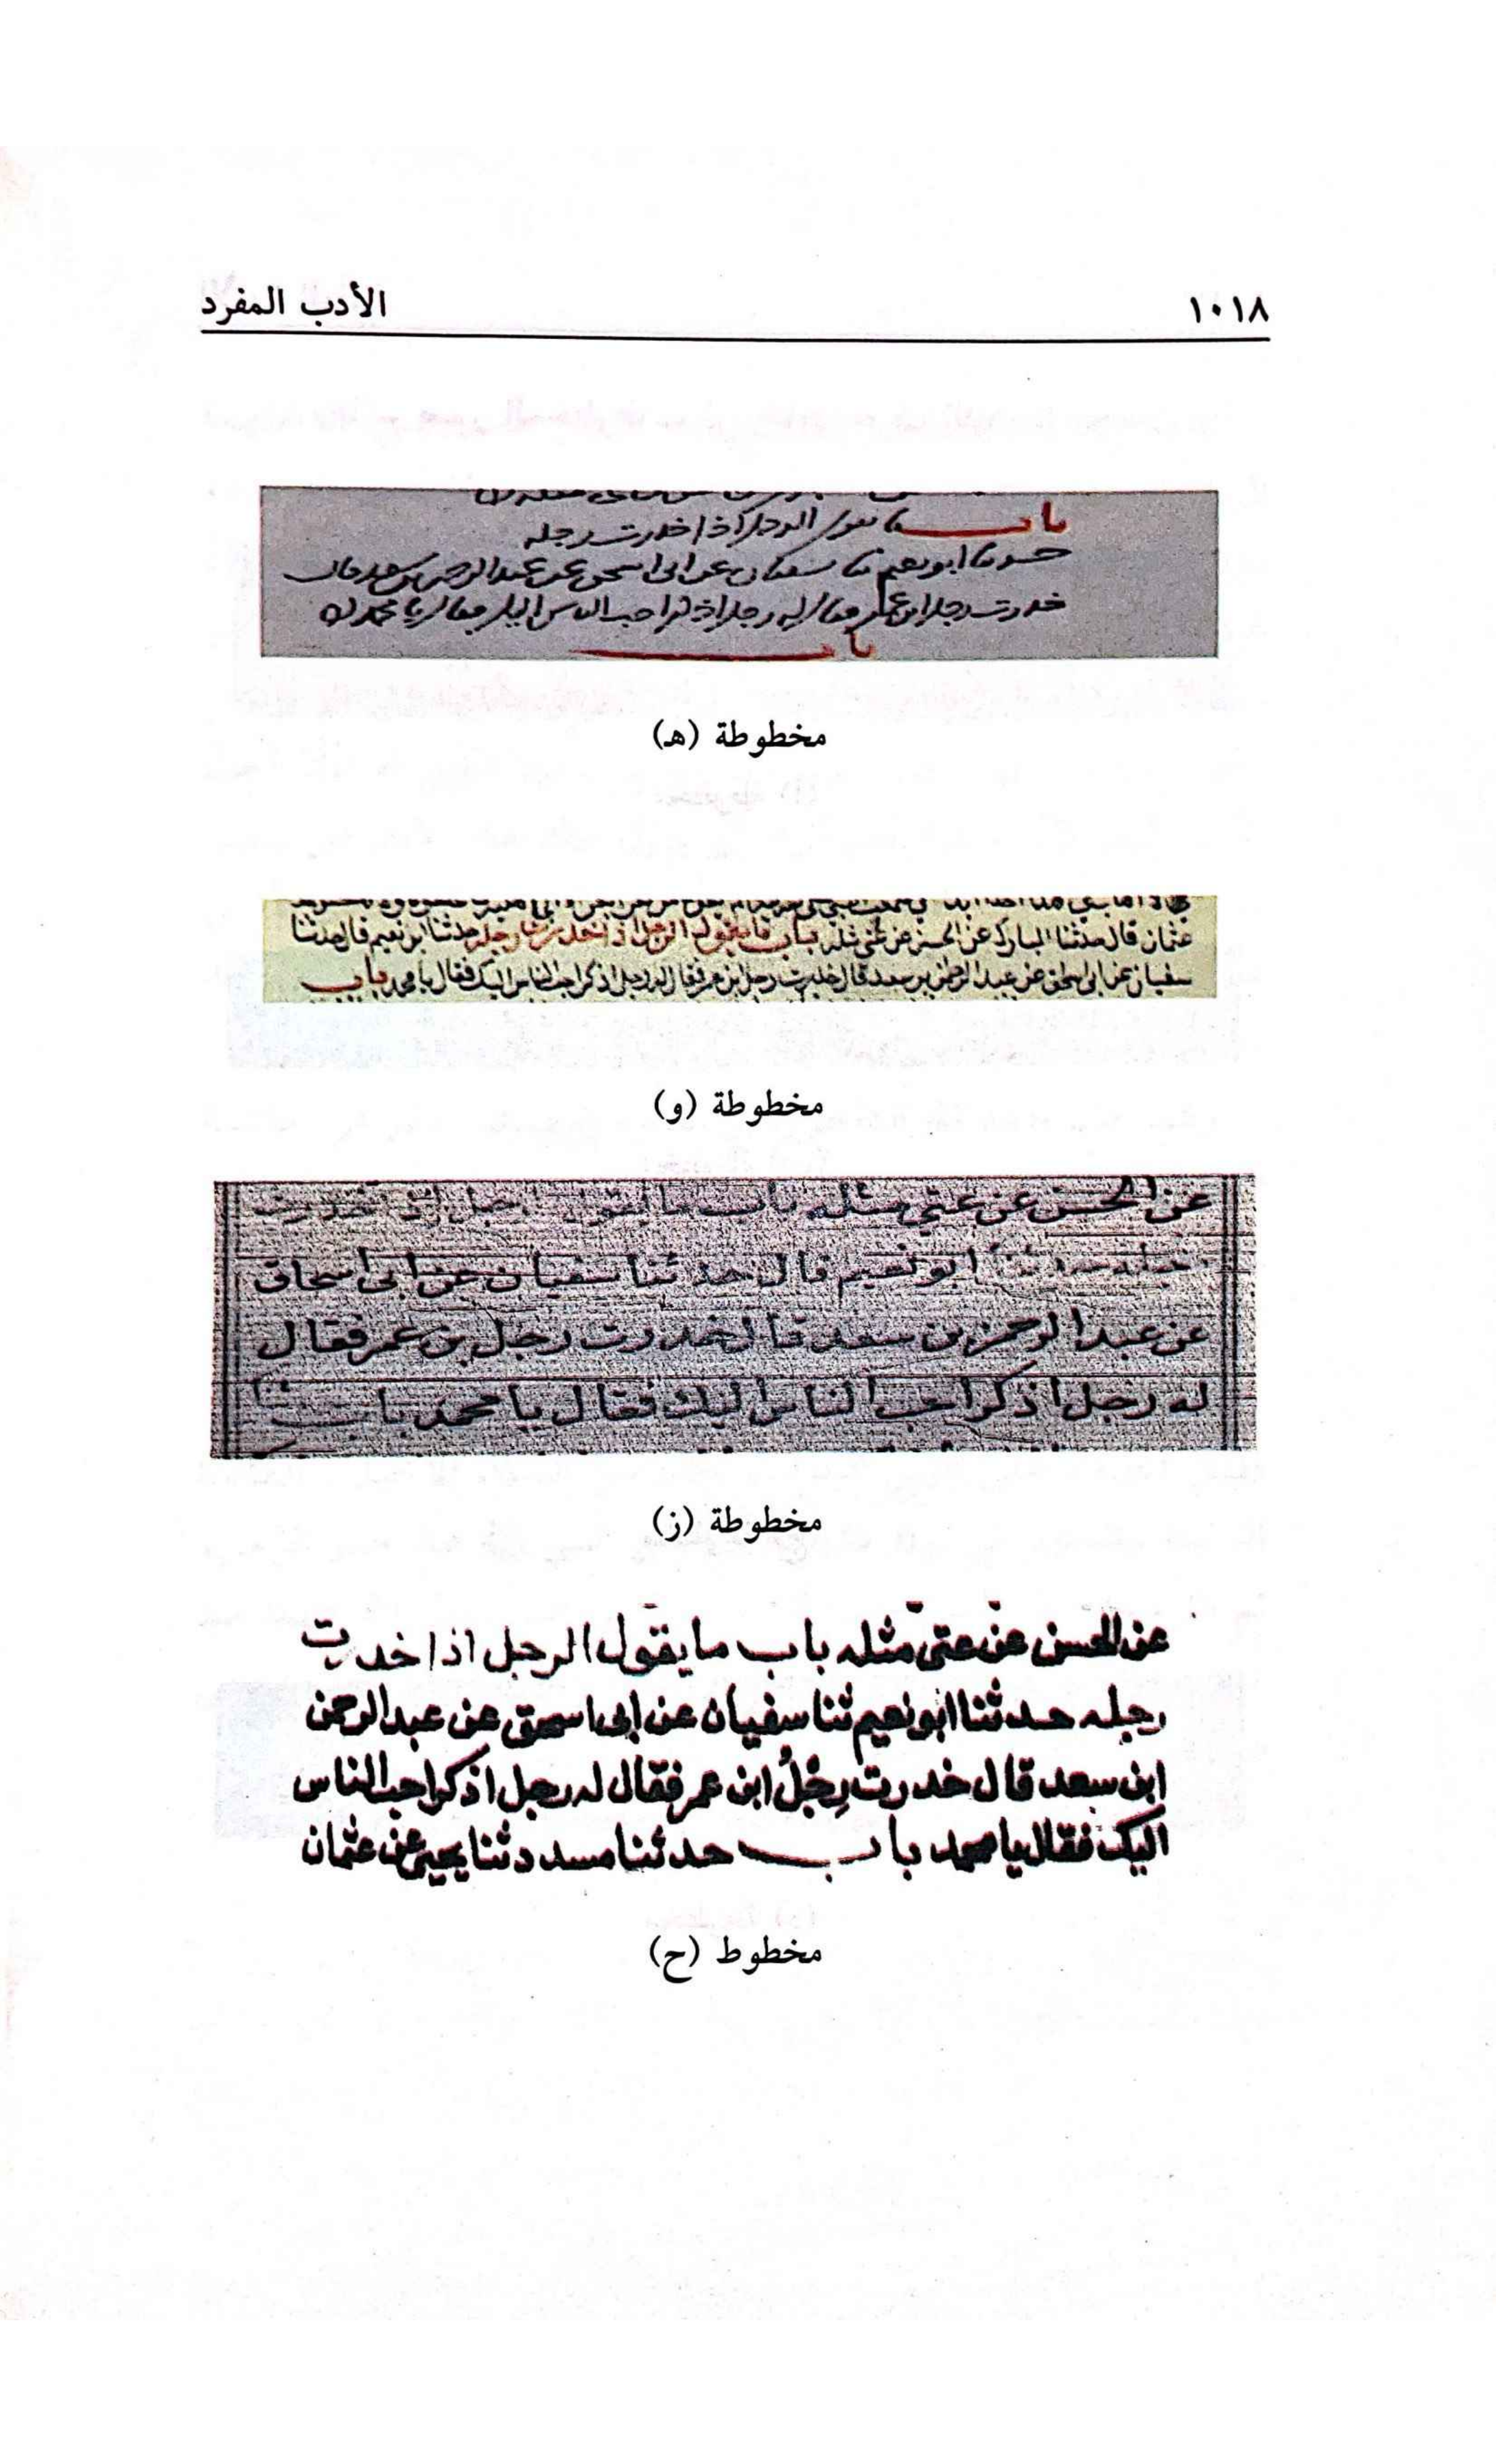 ١٠١٨
الأدب المفرد
باب ما يقول الرجل اذا خدرت رجله
حدثنا ابو نعيم ثنا سفيان عن ابى اسحق عن عبد الرحمن بن سعد قال
خدرت رجل ابن عمر فقال له رجل اذكر احب الناس اليك فقال يا محمد
باب
مخطوطة (هـ)
عثمان قال حدثنا المبارك عن الحسن عن عتى مثله باب ما يقول الرجل اذا خدرت رجله حدثنا ابو نعيم قال حدثنا
سفيان عن ابى اسحاق عن عبد الرحمن بن سعد قال خدرت رجل ابن عمر فقال له رجل اذكر احب الناس اليك فقال يا محمد باب
مخطوطة (و)
عن الحسن عن عتي مثله باب ما يقول الرجل اذا خدرت
رجله حدثنا ابو نعيم قال حدثنا سفيان عن ابى اسحاق
عن عبد الرحمن بن سعد قال خدرت رجل بن عمر فقال
له رجل اذكر احب الناس اليك فقال يا محمد باب
مخطوطة (ز)
عن الحسن عن عتىّ مثله باب ما يقول الرجل اذا خدرت
رجله حدثنا ابو نعيم ثنا سفيان عن ابى اسحق عن عبد الرحمن
ابن سعد قال خدرت رِجْلُ ابن عمر فقال له رجل اذكر احب الناس
اليك فقال يا محمد باب حدثنا مسدد ثنا يحيى عن عثمان
مخطوط (ح)